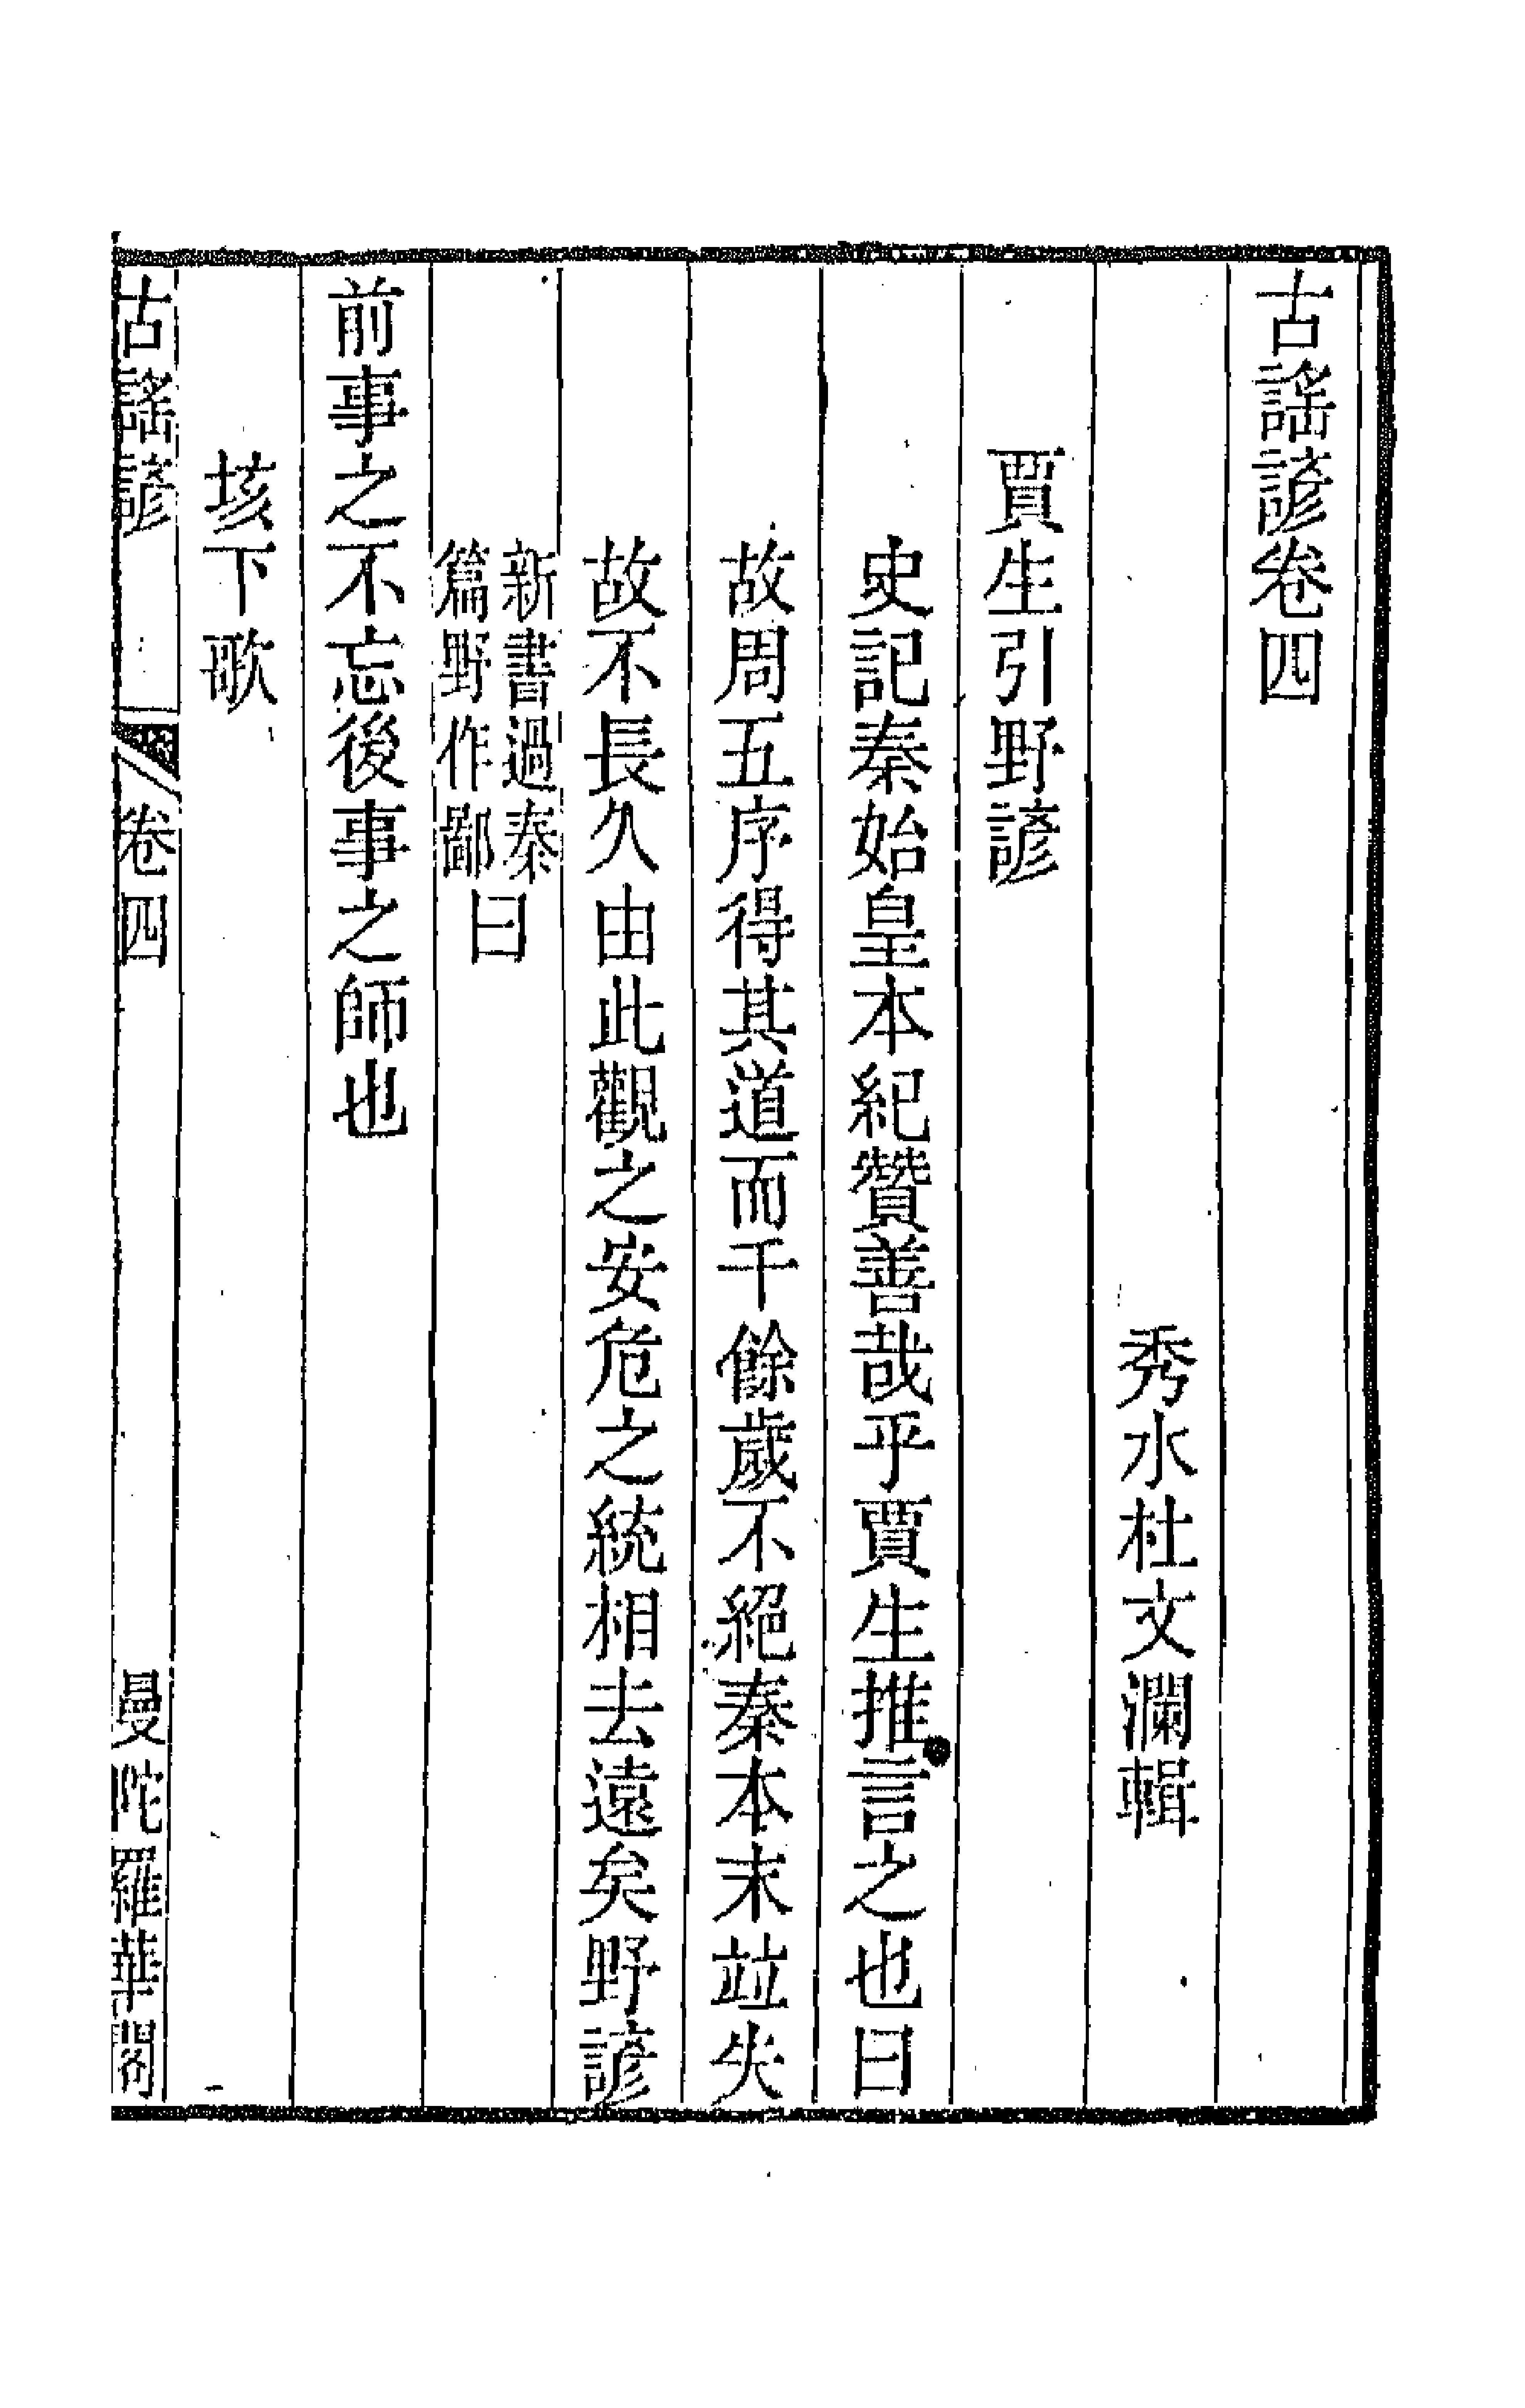 古謠諺卷四
秀水杜文瀾輯
賈生引野諺
史記秦始皇本紀贊善哉乎賈生推言之也曰
故周五序得其道而千餘歲不絕秦本末竝失
故不長久由此觀之安危之統相去遠矣野諺
新書過秦
篇野作鄙
曰
前事之不忘後事之師也
垓下歌
古謠諺 卷四 曼陀羅華閣